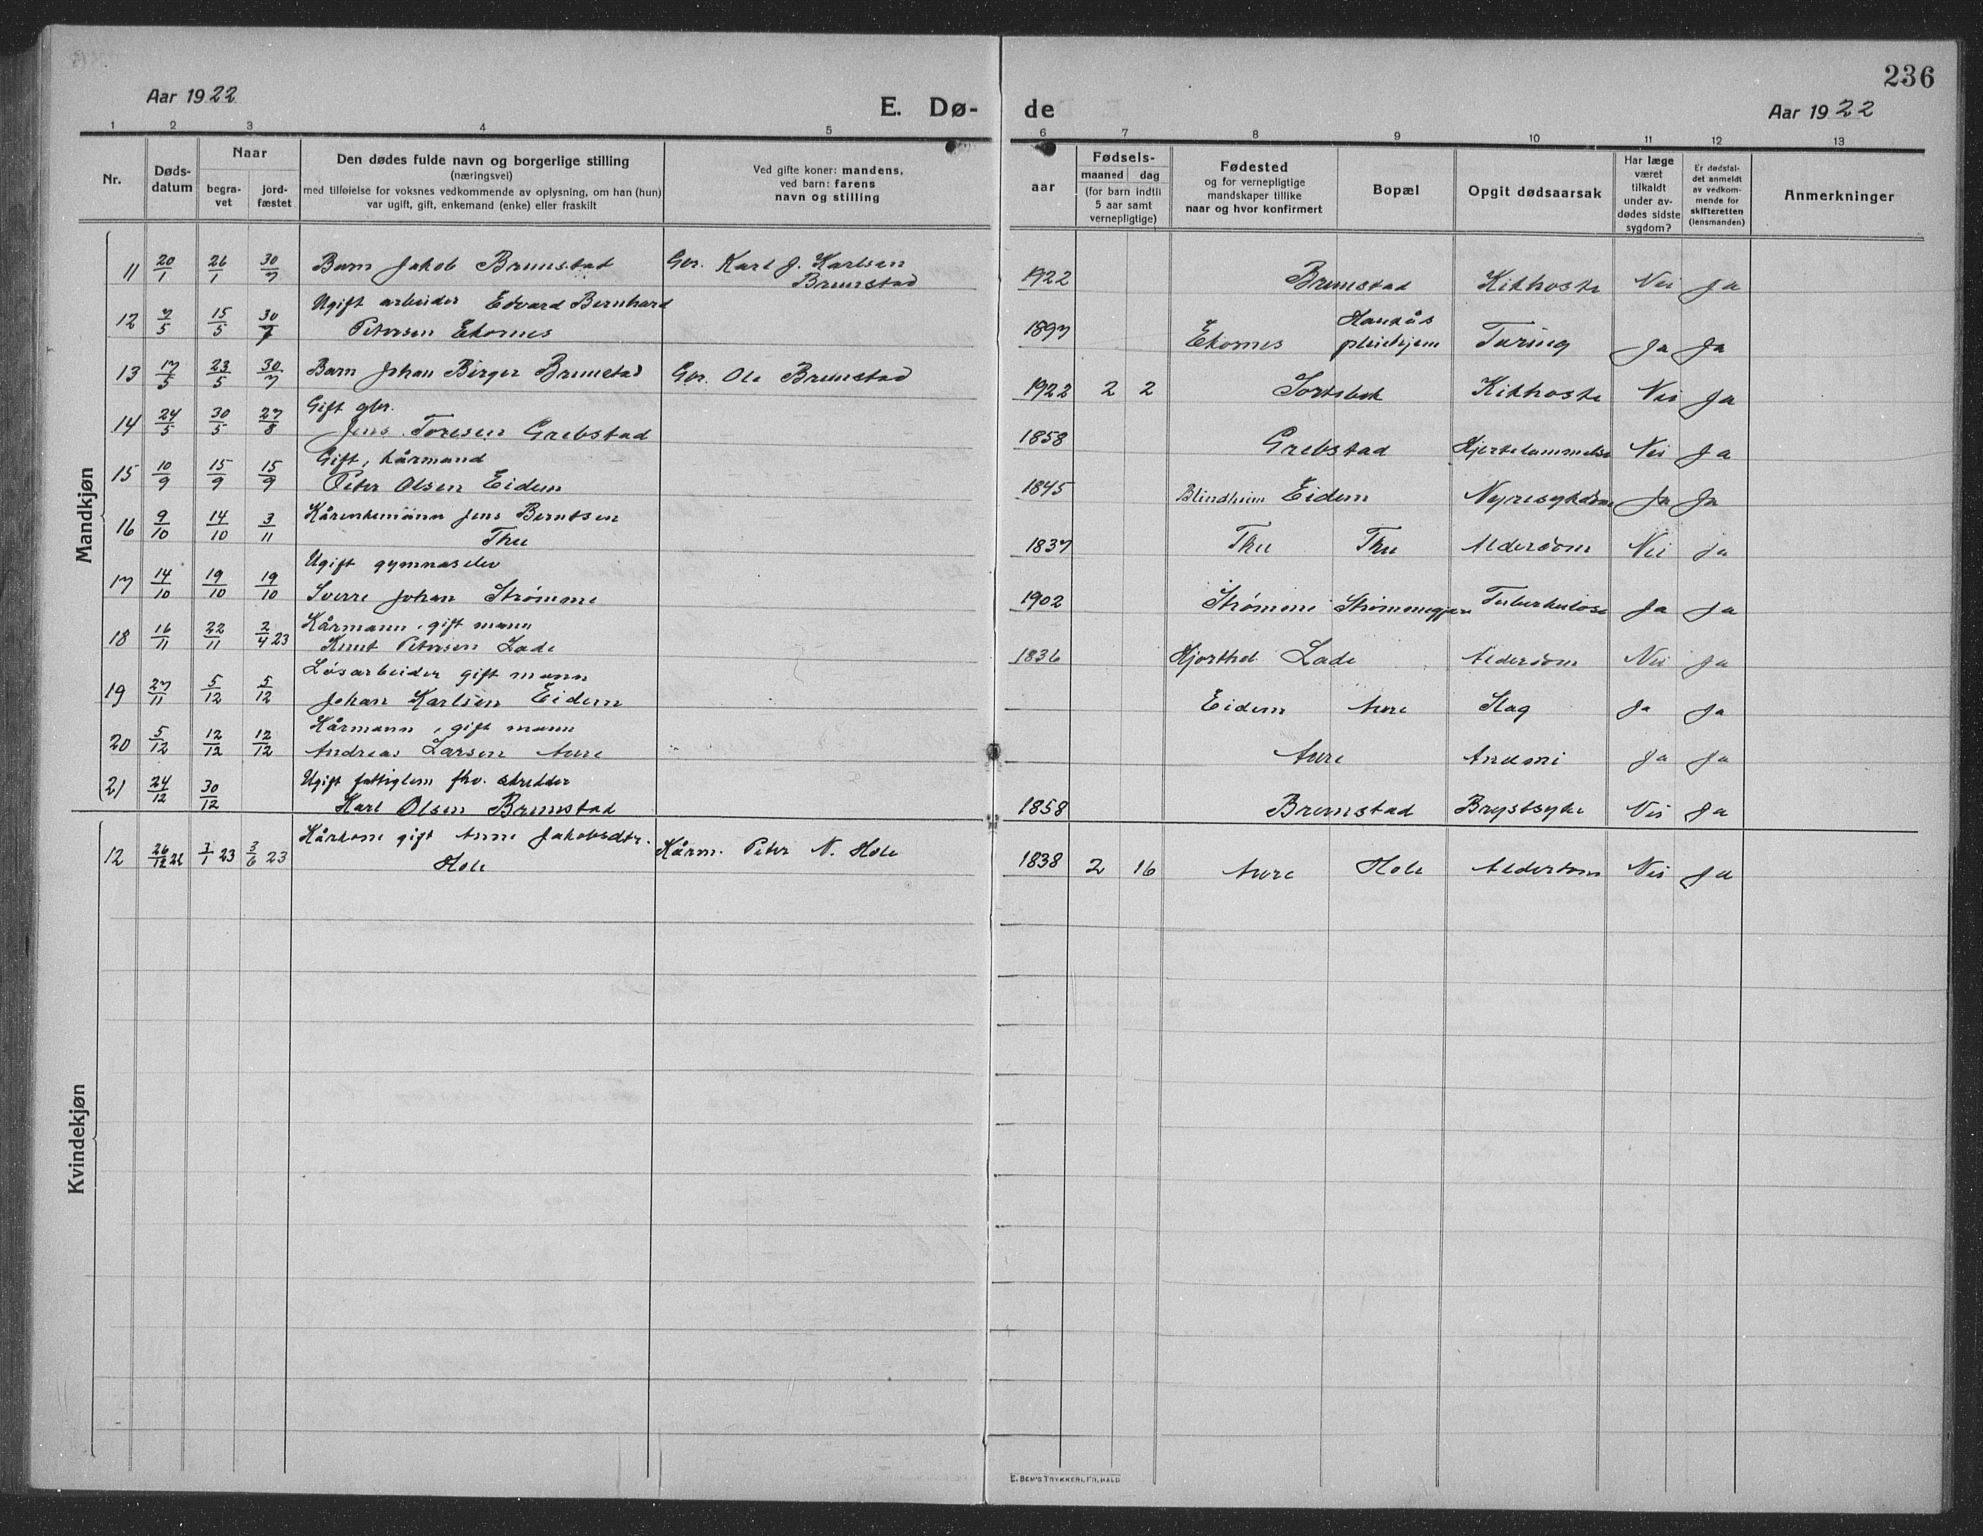 236
Aar 1922
E. Dø-
de
Aar 1922
1 2 3 4 5 6 7 8 9 10 11 12 13
Nr.
Døds-
datum
Naar
begra-
vet
jord-
fæstet
Den dødes fulde navn og borgerlige stilling
(næringsvei)
med tilføielse for voksnes vedkommende av oplysning, om han (hun)
var ugift, gift, enkemand (enke) eller fraskilt
Ved gifte koner: mandens,
ved barn: farens
navn og stilling
aar
Fødsels-
maaned dag
(for barn indtil
5 aar samt
vernepligtige)
Fødested
og for vernepligtige
mandskaper tillike
naar og hvor konfirmert
Bopæl
Opgit dødsaarsak
Har læge
været
tilkaldt
under av-
dødes sidste
sygdom?
Er dødsfal-
det anmeldt
av vedkom-
mende for
skifteretten
(lensmanden)
Anmerkninger
Mandkjøn
11 20/1 26/1 30/7 Barn Jakob Bremstad Gbr. Karl J. Karlsen
Bremstad
1922 Bremstad Kikhoste Nei Ja
Ugift arbeider Edvard Bernhard
12 7/5 15/5 30/7 Petersen Ekornes
1897 Ekornes pleiehjem Tæring Ja Ja
13 17/5 23/5 30/7 Barn Johan Birger Bremstad Gbr. Ole Bremstad
1922 2 2 Kikhoste Nei Ja
Gift gbr.
14 24/5 30/5 27/8 Jens Toresen Grebstad
1858 Grebstad Hjertelammelse Nei Ja
Gift, kårmand
15 10/9 15/9 15/9 Peter Olsen Eidem
1845 Blindheim Eidem Nyresykdom Ja Ja
Kårenkemann Jens Berntsen
16 9/10 14/10 3/11 Thu
1837 Thu Thu Alderdom Nei Ja
Ugift gymnaselev
17 14/10 19/10 19/10 Sverre Johan Strømme
1902 Strømme Tuberkulose Ja Ja
Kårmann, gift mann
18 16/11 22/11 2/4 23 Knut Petersen Lade
1836 Hjorthol Lade Alderdom Nei Ja
Løsarbeider gift mann
19 27/11 5/12 5/12 Johan Karlsen Eidem
Eidem Aure Slag Ja Ja
Kårmann, gift mann
20 5/12 12/12 12/12 Andreas Larsen Aure
Aure Anæmi Ja Ja
Ugift fattiglem fhv. skredder
21 24/12 30/12 Karl Olsen Bremstad
1858 Bremstad Brystsyke Nei Ja
Kvindekjøn
Kårkone gift Anne Jakobsdtr.
12 26/12 22 3/1 23 3/6 23 Hole
Kårm. Peter N. Hole
1838 2 16 Aure Hole Alderdom Nei Ja
E. SEM'S TRYKKERI, FR.HALD